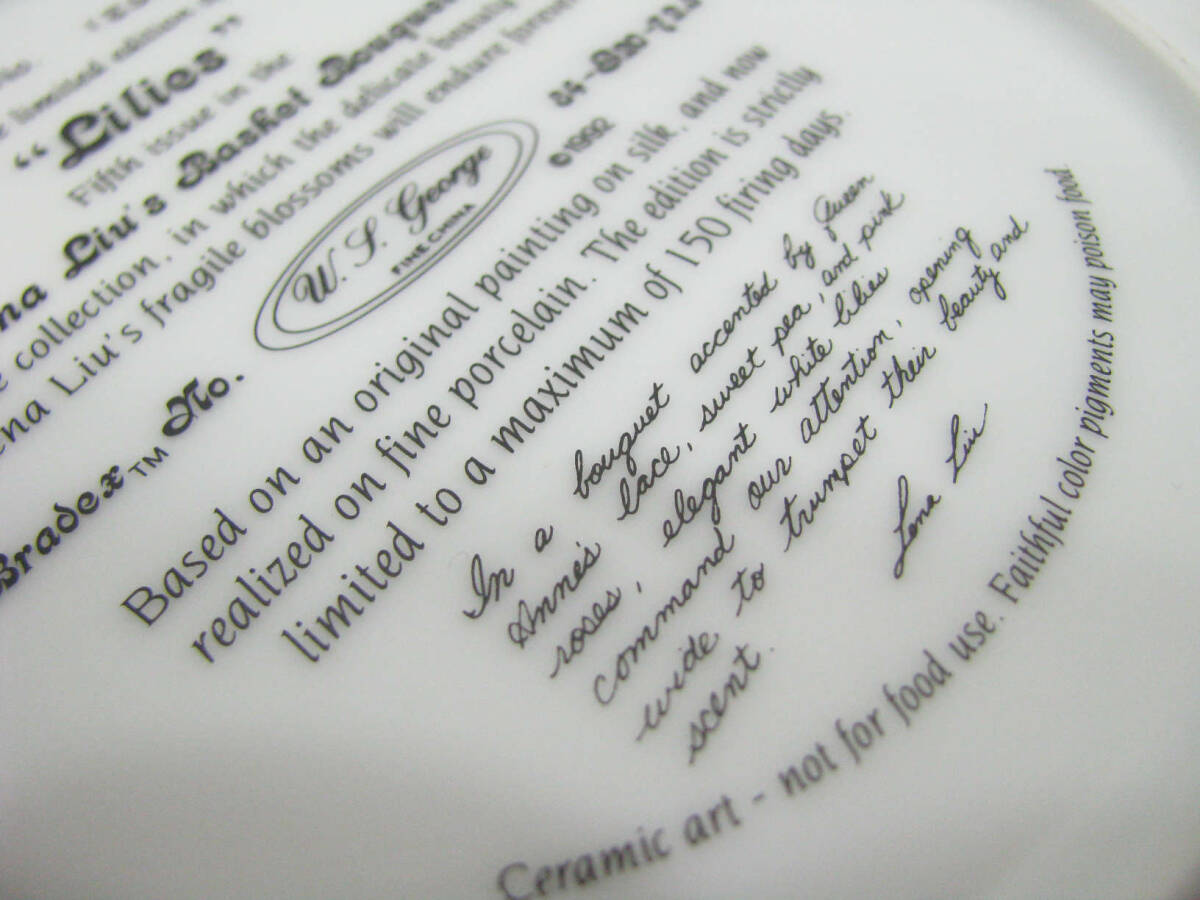 limited edition
“Lilies”
Fifth issue in the
Liu's Basket
collection, in which the delicate beauty
Liu's fragile blossoms will endure forever
Bradex™ No.
84-
W. S. George
FINE CHINA
©1992
Based on an original painting on silk, and now
realized on fine porcelain. The edition is strictly
limited to a maximum of 150 firing days.
In a bouquet accented by Queen
Anne's lace, sweet pea, and pink
roses, elegant white lilies
command our attention, opening
wide to trumpet their beauty and
scent.
Lena Liu
Ceramic art - not for food use. Faithful color pigments may poison food.